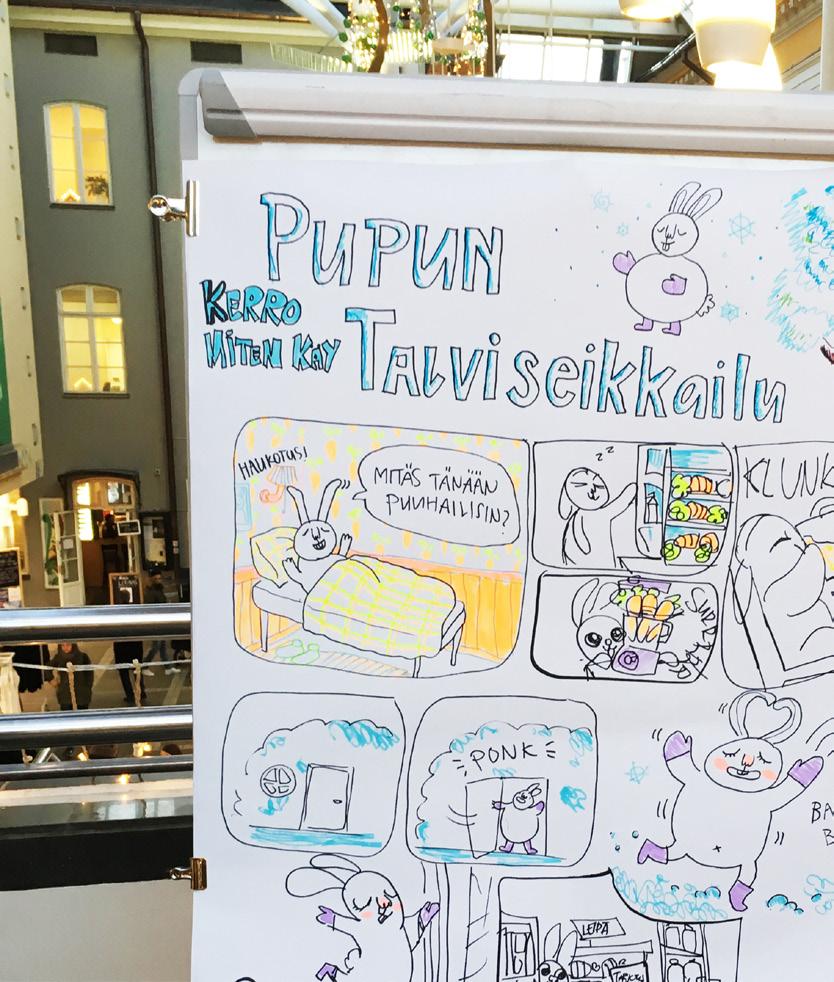 PUPUN
KERRO
MITEN KÄY
TALVISEIKKAILU
HAUKOTUS!
MITÄS TÄNÄÄN
PUUHAILISIN?
ZZ
KLUNK
SURRRRR
PONK
BA
B
LEIPÄ